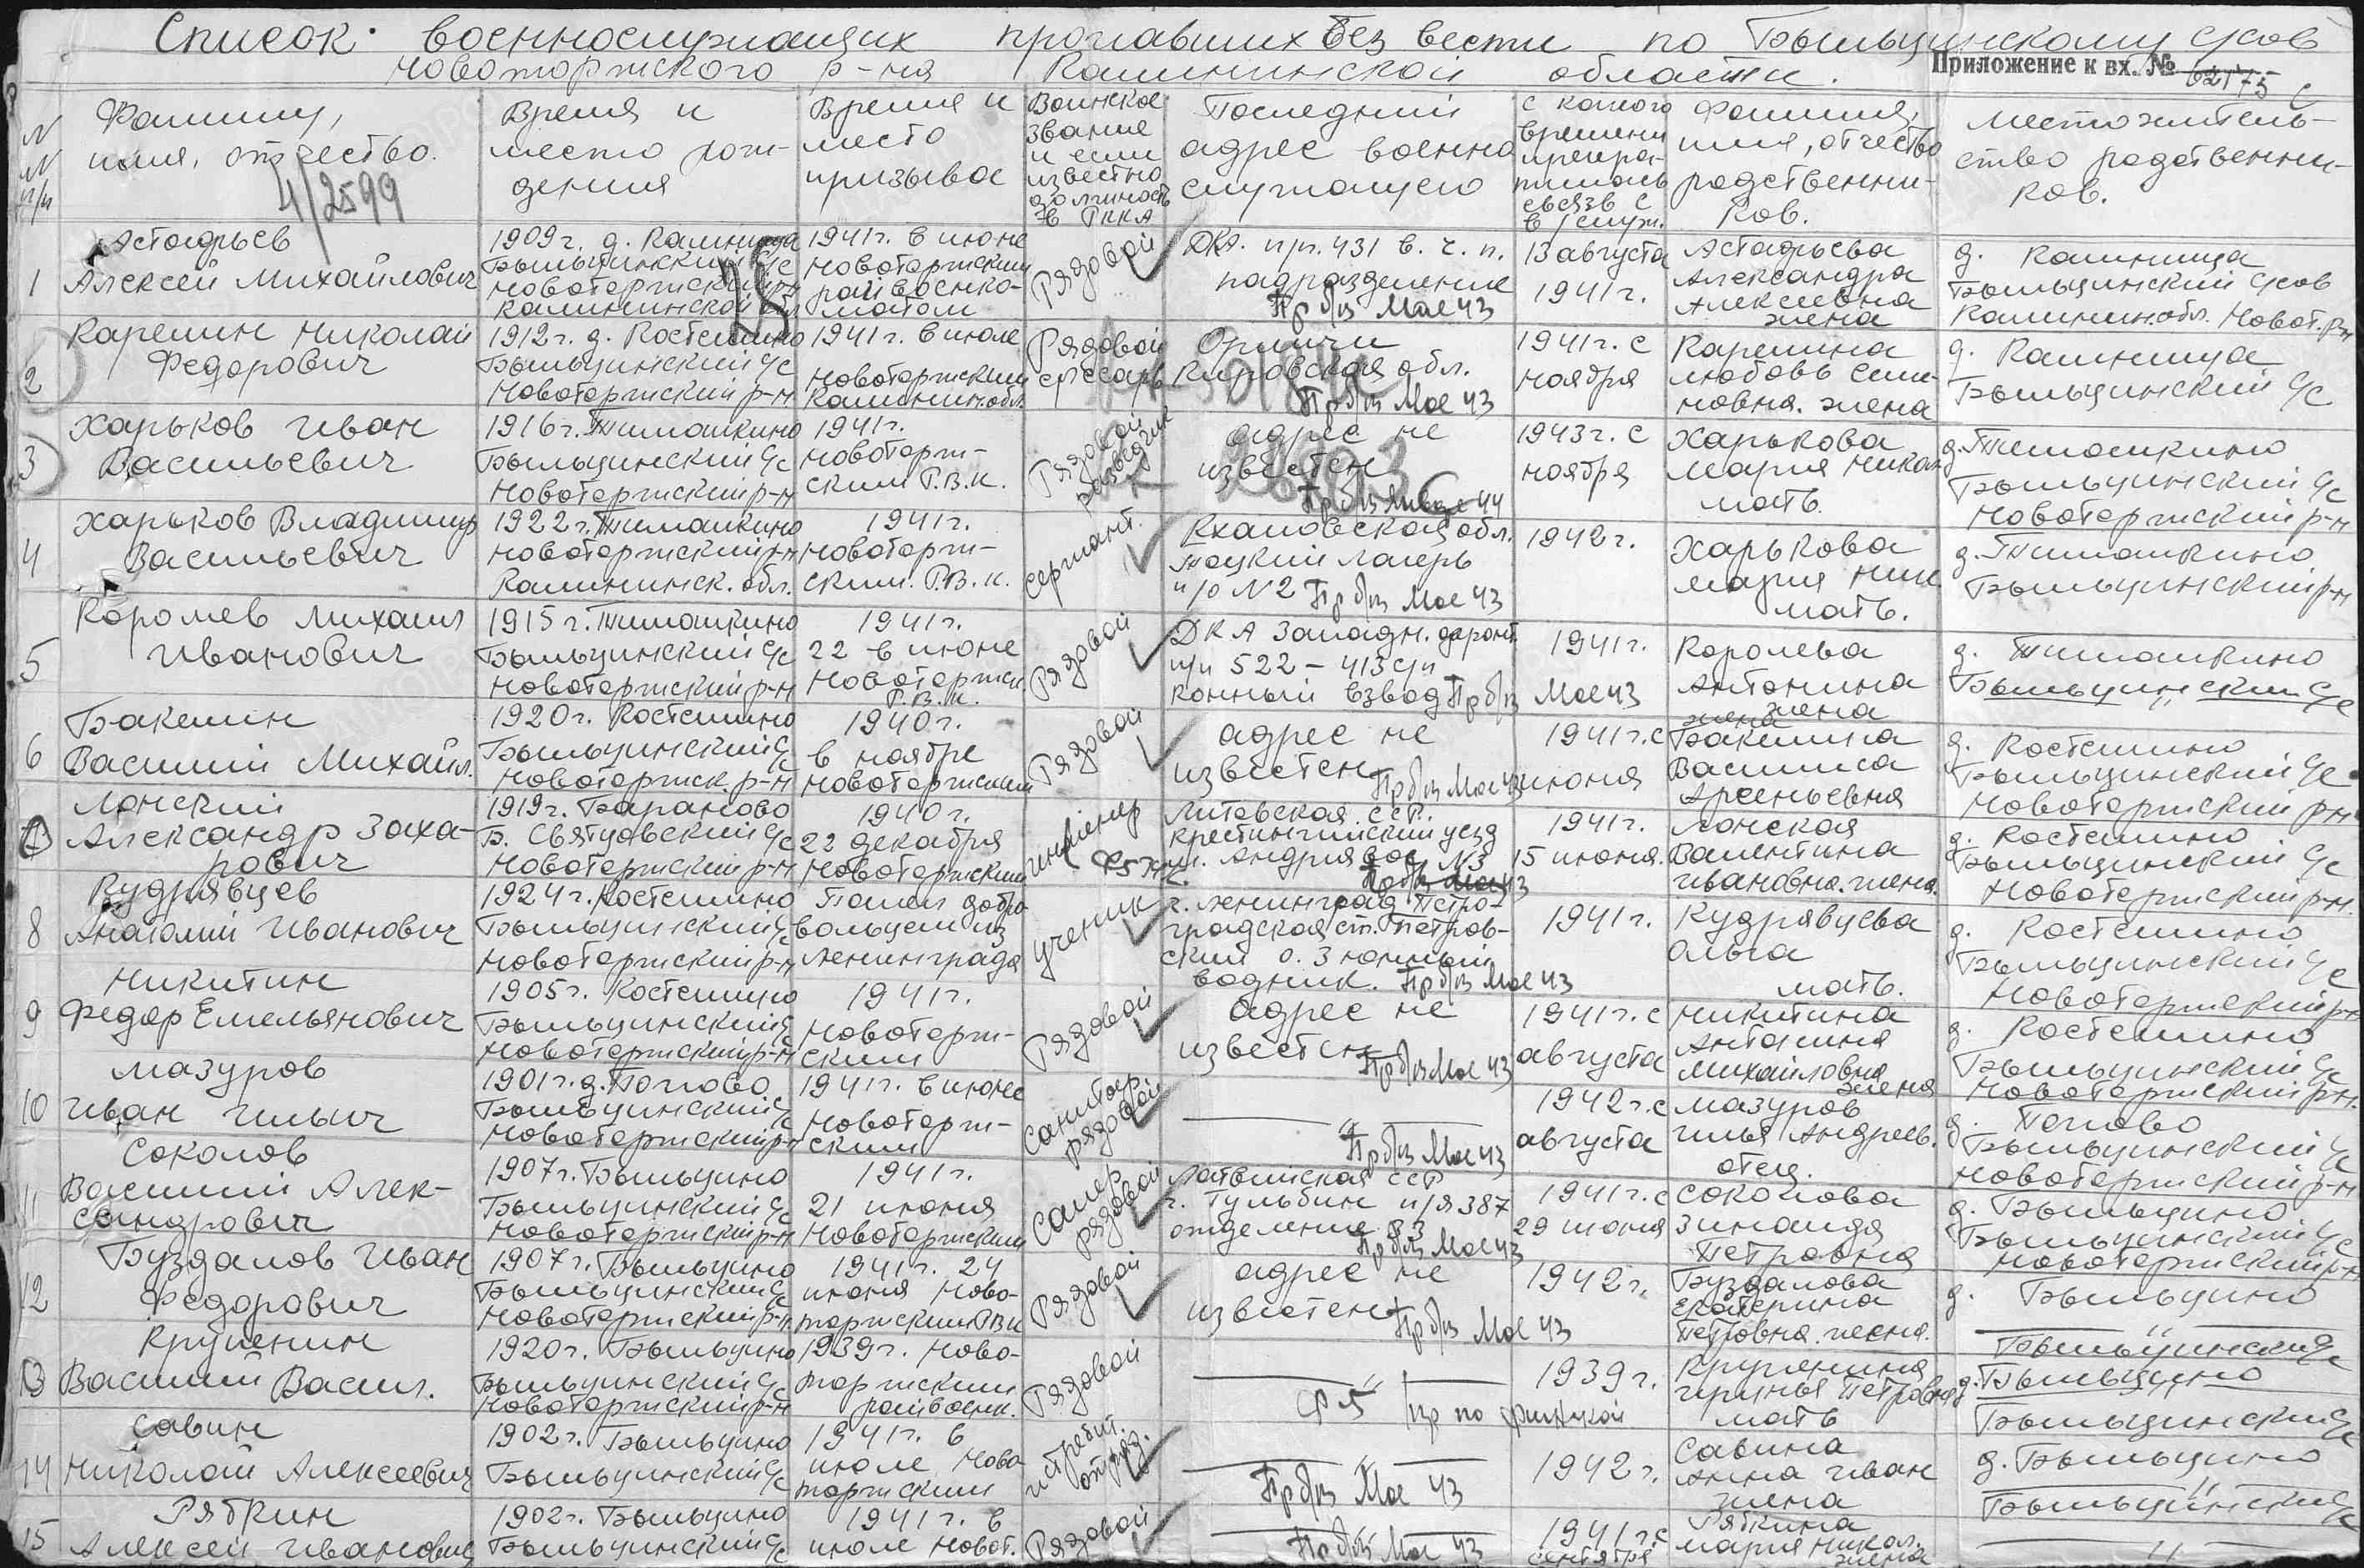 Список военнослужащих пропавших без вести по Быльцинскому с/сов
Новоторжского р-на Калининской области.
Приложение к вх. № 62175 с
N N п/п
Фамилия, имя, отчество.
4/2599
Время и место рождения
Время и место призыва
Воинское звание и если известно должность в РККА
Последний адрес военнослужащего
С какого времени прекратилась связь с в/служ.
Фамилия, имя, отчество родственников.
Местожительство родственников.
1
Астафьев
Алексей Михайлович
1909 г. д. Калиница
Быльцинский с/с
Новоторжский р-н
Калининской обл
1941 г. в июне
Новоторжским
райвоенко-
матом
Рядовой
ДКА. п/п. 431 в. ч. п.
подразделение
Пр б/в Мае 43
13 августа
1941 г.
Астафьева
Александра
Алексеевна
жена
д. Калиница
Быльцинский с/сов
Калинин. обл. Новот. р-н
2
Карелин Николай
Федорович
1912 г. д. Костешино
Быльцинский с/с
Новоторжский р-н
1941 г. в июле
Новоторжским
Калинин. обл.
Рядовой
слесарь
Оричи
Кировская обл.
Пр б/в Мае 43
1941 г. с
ноября
Карелина
Любовь Семе-
новна. жена
д. Калиница
Быльцинский с/с
3
Харьков Иван
Васильевич
1916 г. Тимошкино
Быльцинский с/с
Новоторжский р-н
1941 г.
Новоторж-
ским Р.В.К.
Рядовой
разведчик
адрес не
известен
Пр б/в Январе 44
1943 г. с
ноября
Харькова
Мария Никол
мать.
д. Тимошкино
Быльцинский с/с
Новоторжский р-н
4
Харьков Владимир
Васильевич
1922 г. Тимошкино
Новоторжский р-н
Калининск. обл.
1941 г.
Новоторж-
ским. Р.В.К.
Сержант.
Чкаловская обл.
Тоцкий лагерь
п/о N 2 Пр б/в Мае 43
1942 г.
Харькова
Мария Ник.
мать.
д. Тимошкино
Быльцинский р-н
5
Королев Михаил
Иванович
1915 г. Тимошкино
Быльцинский с/с
Новоторжский р-н
1941 г.
22 в июне
Новоторжск.
Р.В.К.
Рядовой
ДКА Западн. фронт.
п/п 522 – 413 с/п
конный взвод Пр б/в Мае 43
1941 г.
Королева
Антонина
жена
д. Тимошкино
Быльцинский с/с
6
Бакешин
Василий Михайл.
1920 г. Костешино
Быльцинский с/с
Новоторжск. р-н
1940 г.
в ноябре
Новоторжским
Рядовой
адрес не
известен Пр б/в Мае 43
1941 г. с
июня
Бакешина
Василиса
Арсеньевна
д. Костешино
Быльцинский с/с
Новоторжский р-н
7
Лонский
Александр Заха-
рович
1919 г. Бараново
Б. Святцовский с/с
Новоторжский р-н
1940 г.
22 декабря
Новоторжским
инженер
Литовская ССР.
Кретингийский уезд
Пр б/в Мае 43
1941 г.
15 июня.
Лонская
Валентина
Ивановна. жена.
д. Костешино
Быльцинский с/с
Новоторжский р-н.
8
Кудрявцев
Анатолий Иванович
1924 г. Костешино
Быльцинский с/с
Новоторжский р-н
Пошел добро
вольцем из
Ленинграда
ученик
г. Ленинград Петро-
градская ст. Петров-
ский о. 3 юнный
водник. Пр б/в Мае 43
1941 г.
Кудрявцева
Ольга
мать.
д. Костешино
Быльцинский с/с
Новоторжский р-н
9
Никитин
Федор Емельянович
1905 г. Костешино
Быльцинский с/с
Новоторжский р-н
1941 г.
Новоторж-
ским
Рядовой
адрес не
известен Пр б/в Мае 43
1941 г. с
августа
Никитина
Антонина
Михайловна
жена
д. Костешино
Быльцинский с/с
Новоторжский р-н.
10
Мазуров
Иван Ильич
1901 г. д. Попово
Быльцинский с/с
Новоторжский р-н
1941 г. в июне
Новоторж-
ским
Санитар
рядовой
— " —
Пр б/в Мае 43
1942 г. с
августа
Мазуров
Илья Андреев.
отец.
д. Попово
Быльцинский с/с
Новоторжский р-н
11
Соколов
Василий Алек-
сандрович
1907 г. Быльцино
Быльцинский с/с
Новоторжский р-н
1941 г.
21 июня
Новоторжским
Сапер
рядовой
Латвийская ССР
г. Гульбин п/я 387
отделение 33
Пр б/в Мае 43
1941 г. с
29 июня
Соколова
Зинаида
Петровна
д. Быльцино
Быльцинский с/с
Новоторжский р-н
12
Буздалов Иван
Федорович
1907 г. Быльцино
Быльцинский с/с
Новоторжский р-н
1941 г. 24
июня Ново-
торжским РВК
Рядовой
адрес не
известен Пр б/в Мае 43
1942 г.
Буздалова
Екатерина
Петровна. жена.
д. Быльцино
— " —
Быльцинский с/с
13
Крупенин
Василий Васил.
1920 г. Быльцино
Быльцинский с/с
Новоторжский р-н
1939 г. Ново-
торжским
райвоенк.
Рядовой
— " —
Ф 5 пр по финской
1939 г.
Крупенина
Аринья Петровна
мать
д. Быльцино
— " —
Быльцинский с/с
14
Савин
Николай Алексеевич
1902 г. Быльцино
Быльцинский с/с
1941 г. в
июле Ново
торжским
истребит.
отряд.
— " —
Пр б/в Мае 43
1942 г.
Савина
Анна Иван
жена
д. Быльцино
— " —
Быльцинский с/с
15
Рябкин
Алексей Иванович
1902 г. Быльцино
Быльцинский с/с
1941 г. в
июле Новот.
Рядовой
— " —
Пр б/в Мае 43
1941 г. с
сентября
Рябкина
Мария Никол.
жена
— " —